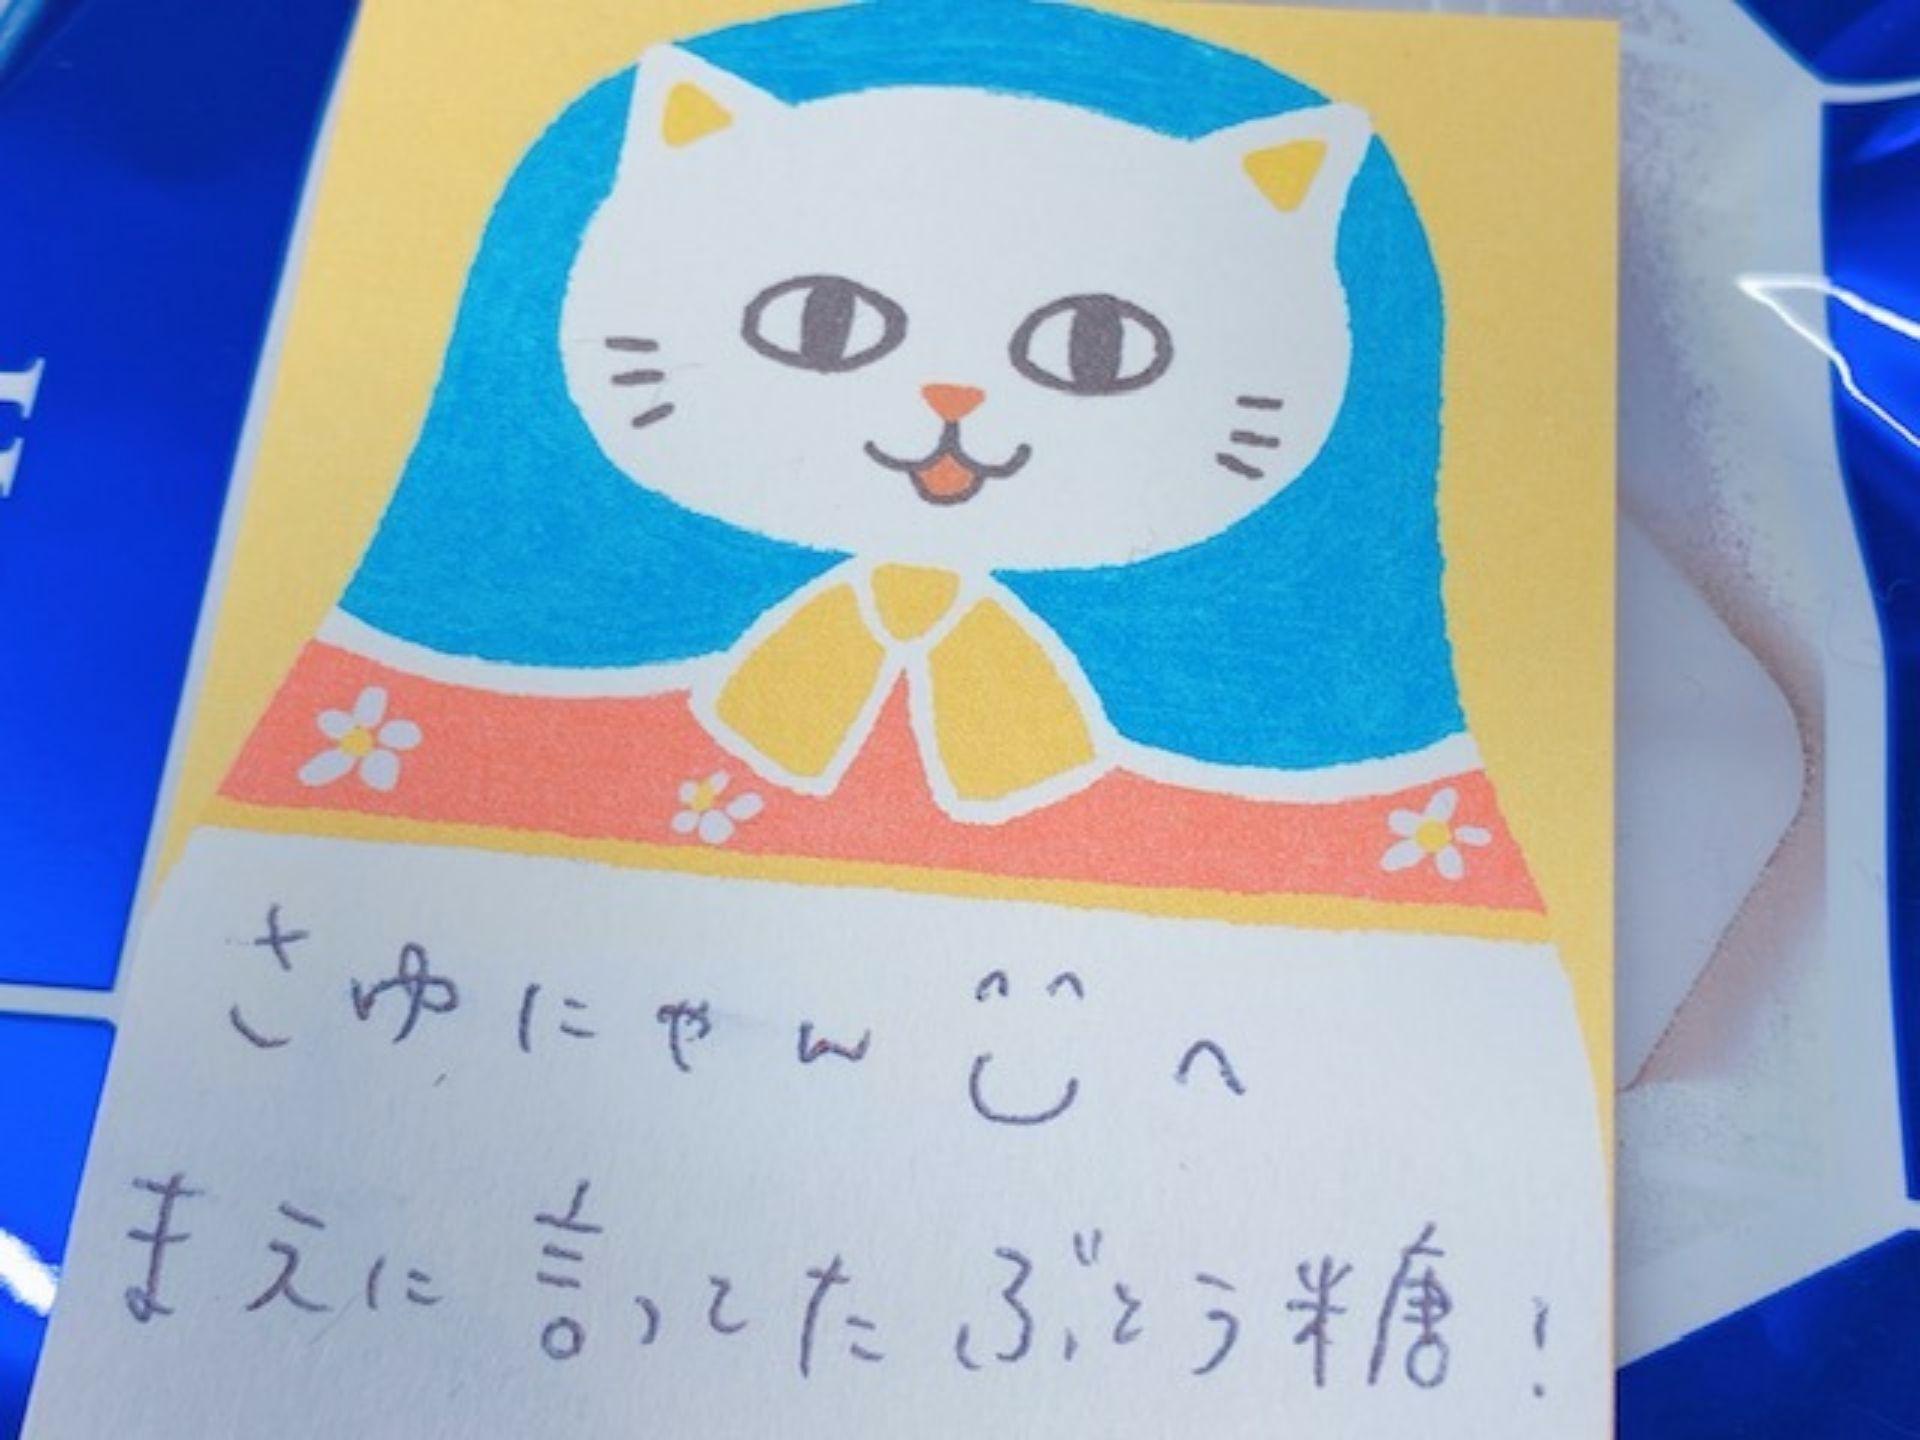 さゆにゃん^^へ
まえに言ってたぶどう糖!